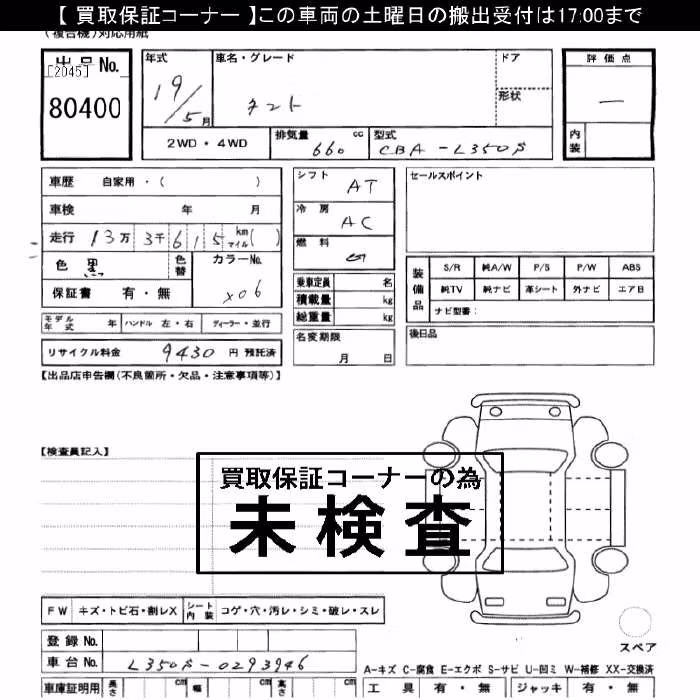 【 買取保証コーナー 】この車両の土曜日の搬出受付は17:00まで
(複合機)対応用紙
出品No.
[2045]
80400
年式
19/5月
車名・グレード
タント
ドア
形状
評価点
—
内装
2WD・4WD
排気量 660 cc
型式 CBA-L350S
車歴 自家用・( )
車検 年 月
走行 13万3千615 km マイル( )
色 黒
色替
カラーNo.
X06
保証書 有・無
モデル年式 年 ハンドル 左・右 ディーラー・並行
リサイクル料金 9430 円 預託済
シフト AT
冷房 AC
燃料
乗車定員 名
積載量 kg
総重量 kg
名変期限
月 日
セールスポイント
装備品
S/R 純A/W P/S P/W ABS
純TV 純ナビ 革シート 外ナビ エアB
ナビ型番:
後日品
【出品店申告欄(不良箇所・欠品・注意事項等)】
【検査員記入】
買取保証コーナーの為
未検査
FW キズ・トビ石・割レX シート内装 コゲ・穴・汚レ・シミ・破レ・スレ
登録No.
車台No. L350S-0293946
車庫証明用 長さ cm 幅 cm 高さ cm
スペア
A-キズ C-腐食 E-エクボ S-サビ U-凹ミ W-補修 XX-交換済
工具 有・無 ジャッキ 有・無